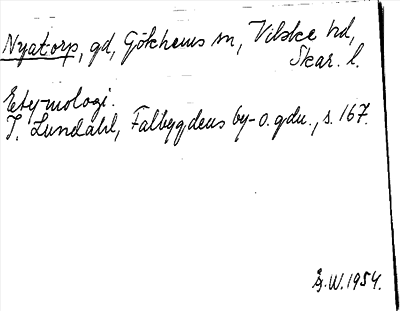 Nyatorp, gd, Gökhems sn, Vilske hd,
Skar. l.
Etymologi.
I. Lundahl, Falbygdens by- o. gdn., s. 167.
Å.W. 1954.